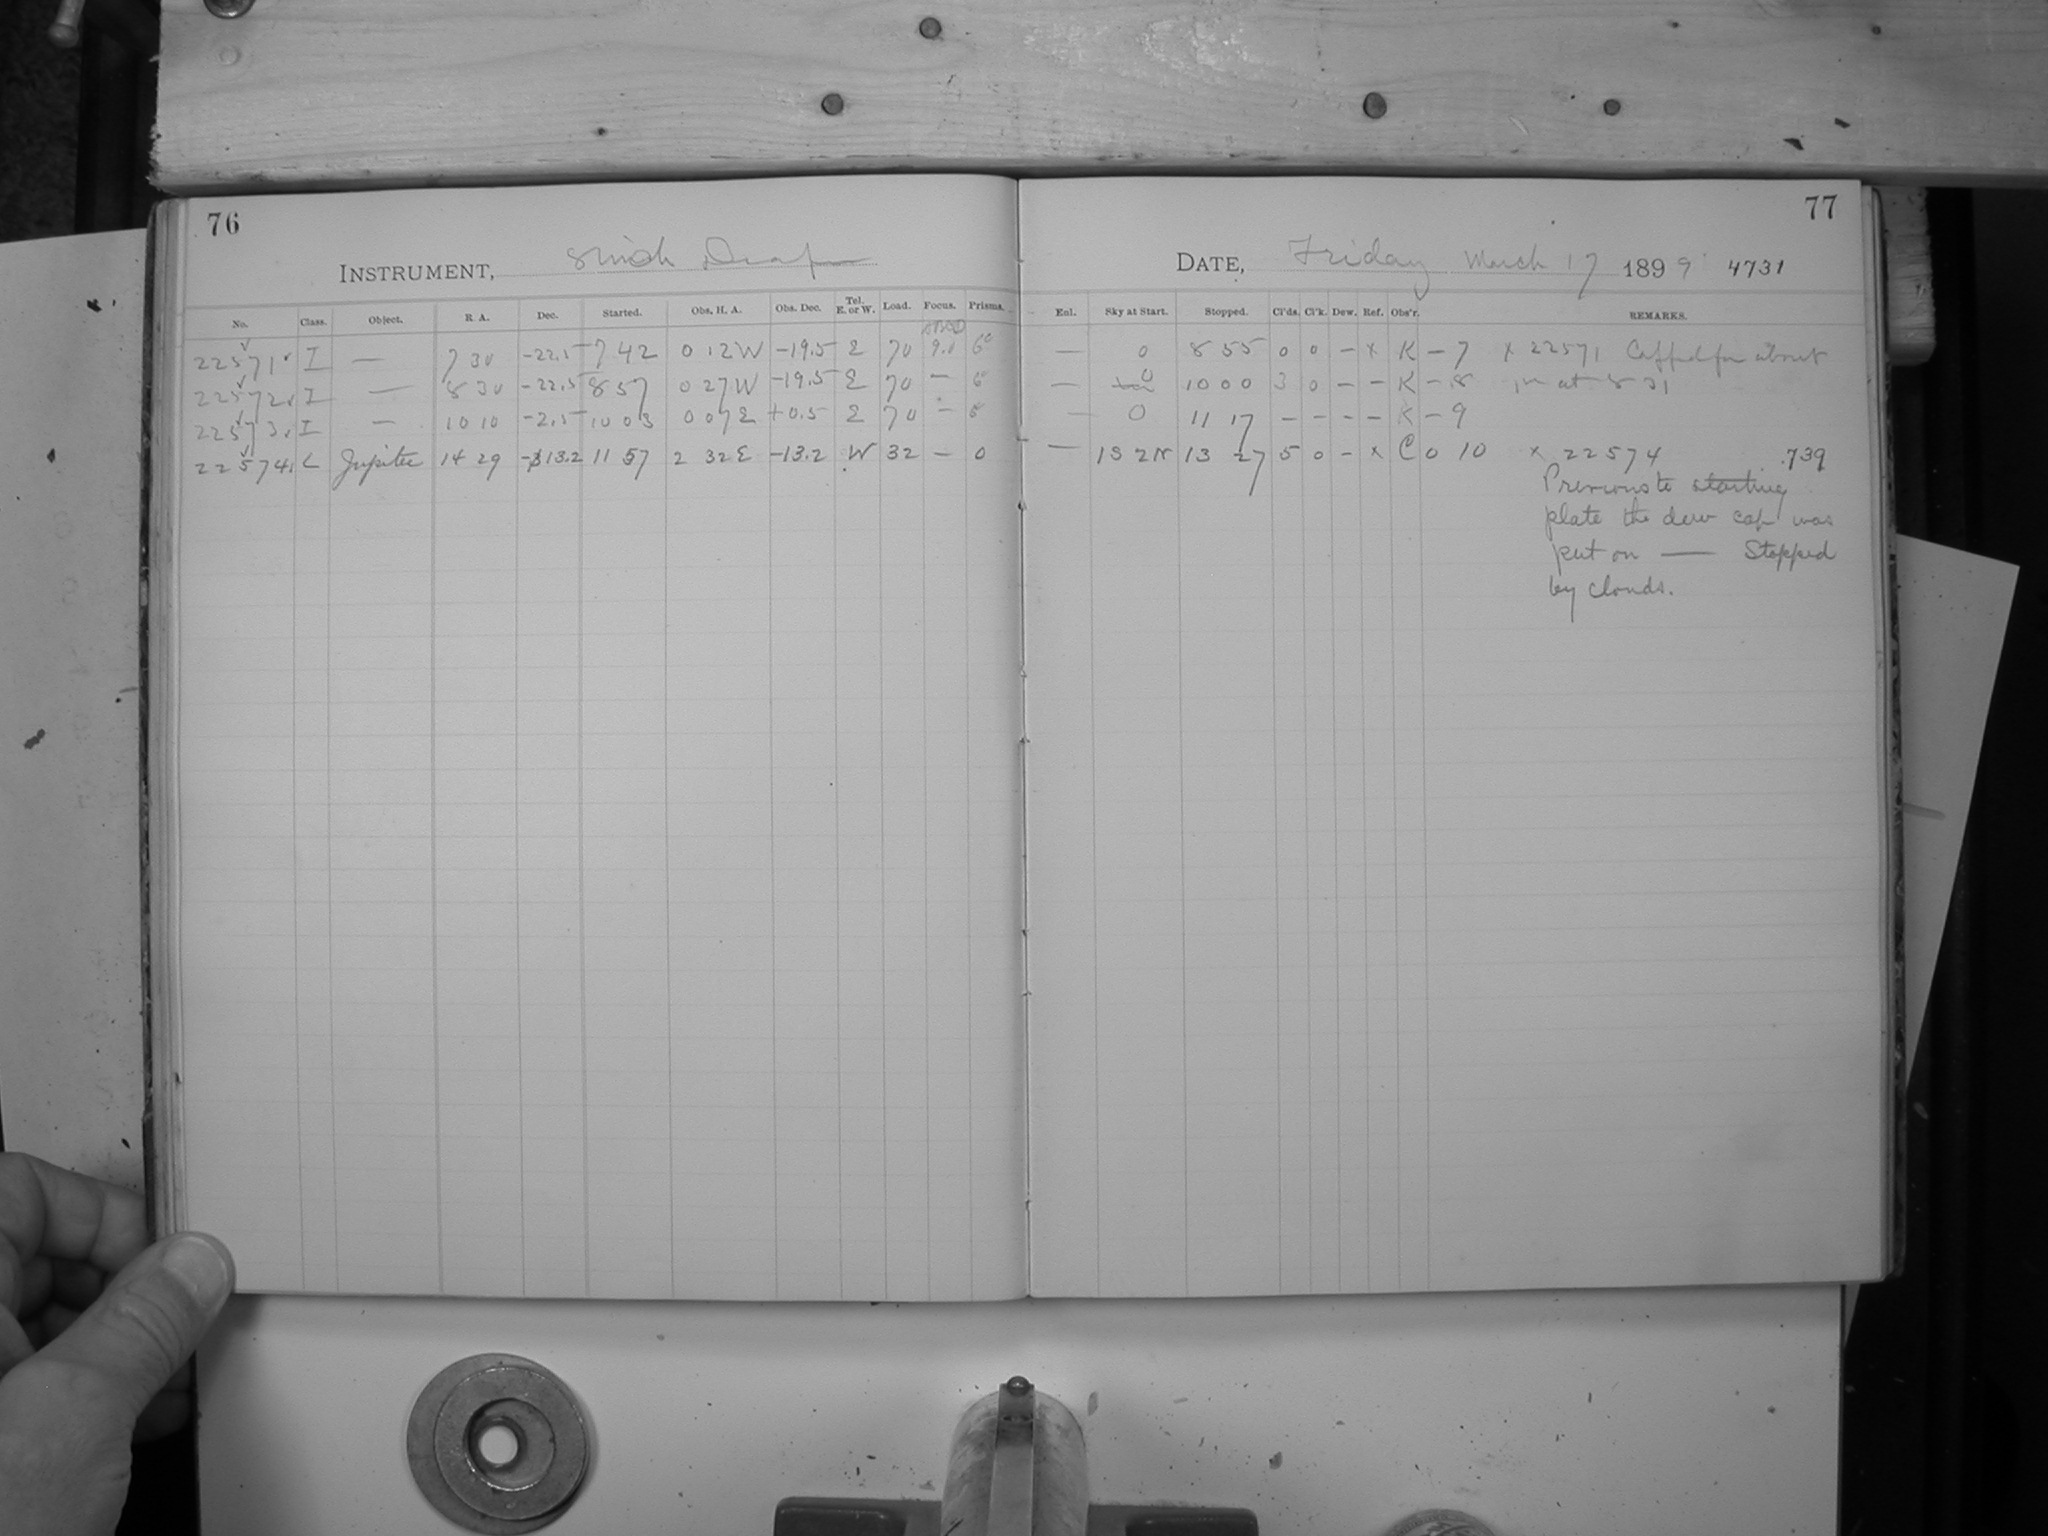 76
INSTRUMENT, 8 inch Drap
No. Class. Object. R A. Dec. Started. Obs. H. A. Obs. Dec. Tel. E. or W. Load. Focus. Prisms.
22571 I — 7 30 -22.5 7 42 0 12 W -19.5 E 70 9.0 6°
22572 I — 8 30 -22.5 8 57 0 27 W -19.5 E 70 — 6°
22573 I — 10 10 -2.5 10 03 0 07 E +0.5 E 70 —
22574 L Jupiter 14 29 -13.2 11 57 2 32 E -13.2 W 32 — 0
77
DATE, Friday March 17 1899 4731
Enl. Sky at Start. Stopped. Cl'ds. Cl'k. Dew. Ref. Obs'r. REMARKS.
— 0 8 55 0 0 — x K — 7 x 22571 Capped for about
— 0 10 00 3 0 — — K — 8 1m at 8 21
— 0 11 17 — — — — K — 9
— 1S 2N 13 27 5 0 — x C 0 10 x 22574 739
Previous to starting
plate the dew cap was
put on — Stopped
by clouds.